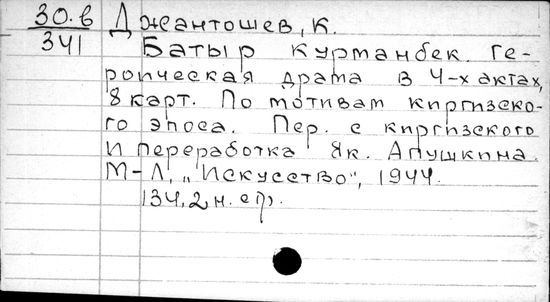 30.в
341
Джантошев, К.
Батыр Курманбек. Ге-
роическая драма в 4-х актах,
8 карт. По мотивам киргизско-
го эпоса. Пер. с киргизского
и переработка Як. Апушкина.
М-Л, „Искусство", 1944.
134, 2 н. стр.